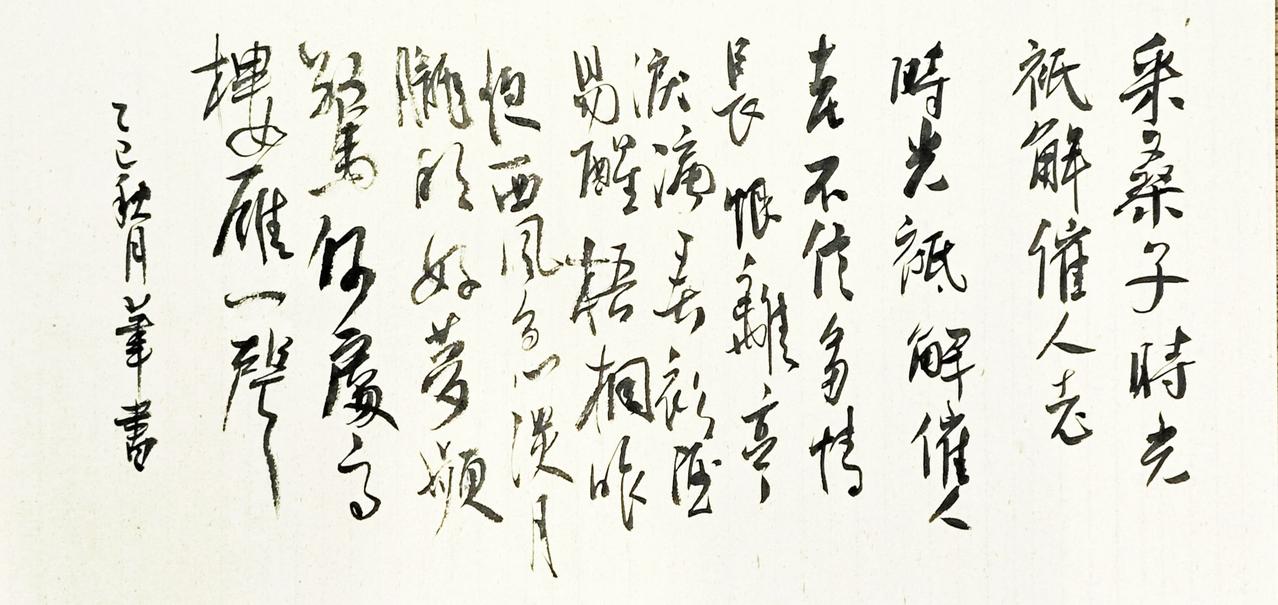 采桑子時光
祇解催人老
時光祇解催人
老不信多情
長恨離亭
淚滴春衫酒
易醒梧桐昨
夜西風急淡月
朧明好夢頻
驚何處高
樓雁一聲
乙巳秋月書